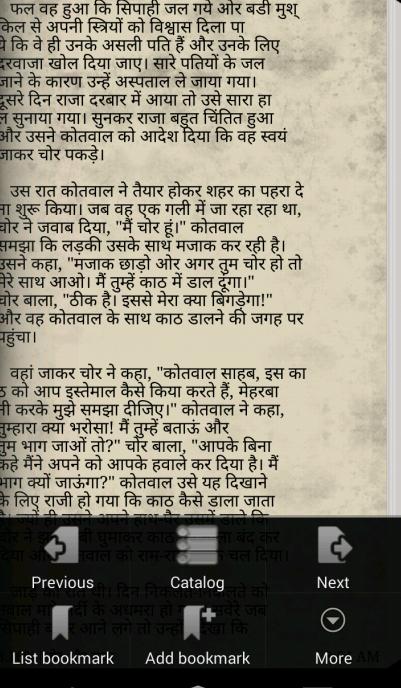 फल वह हुआ कि सिपाही जल गये ओर बडी मुश्
किल से अपनी स्त्रियों को विश्वास दिला पा
ये कि वे ही उनके असली पति हैं और उनके लिए
दरवाजा खोल दिया जाए। सारे पतियों के जल
जाने के कारण उन्हें अस्पताल ले जाया गया।
दूसरे दिन राजा दरबार में आया तो उसे सारा हा
ल सुनाया गया। सुनकर राजा बहुत चिंतित हुआ
और उसने कोतवाल को आदेश दिया कि वह स्वयं
जाकर चोर पकड़े।
उस रात कोतवाल ने तैयार होकर शहर का पहरा दे
ना शुरू किया। जब वह एक गली में जा रहा रहा था,
चोर ने जवाब दिया, "मैं चोर हूं।" कोतवाल
समझा कि लड़की उसके साथ मजाक कर रही है।
उसने कहा, "मजाक छाड़ो ओर अगर तुम चोर हो तो
मेरे साथ आओ। मैं तुम्हें काठ में डाल दूंगा।"
चोर बाला, "ठीक है। इससे मेरा क्या बिगड़ेगा!"
और वह कोतवाल के साथ काठ डालने की जगह पर
पहुंचा।
वहां जाकर चोर ने कहा, "कोतवाल साहब, इस का
ठ को आप इस्तेमाल कैसे किया करते हैं, मेहरबा
नी करके मुझे समझा दीजिए।" कोतवाल ने कहा,
तुम्हारा क्या भरोसा! मैं तुम्हें बताऊं और
तुम भाग जाओं तो?" चोर बाला, "आपके बिना
कहे मैंने अपने को आपके हवाले कर दिया है। मैं
भाग क्यों जाऊंगा?" कोतवाल उसे यह दिखाने
के लिए राजी हो गया कि काठ कैसे डाला जाता
है। ज्यों ही उसने अपने हाथ-पैर उसमें डाले कि
Previous
Catalog
Next
List bookmark
Add bookmark
More
AM